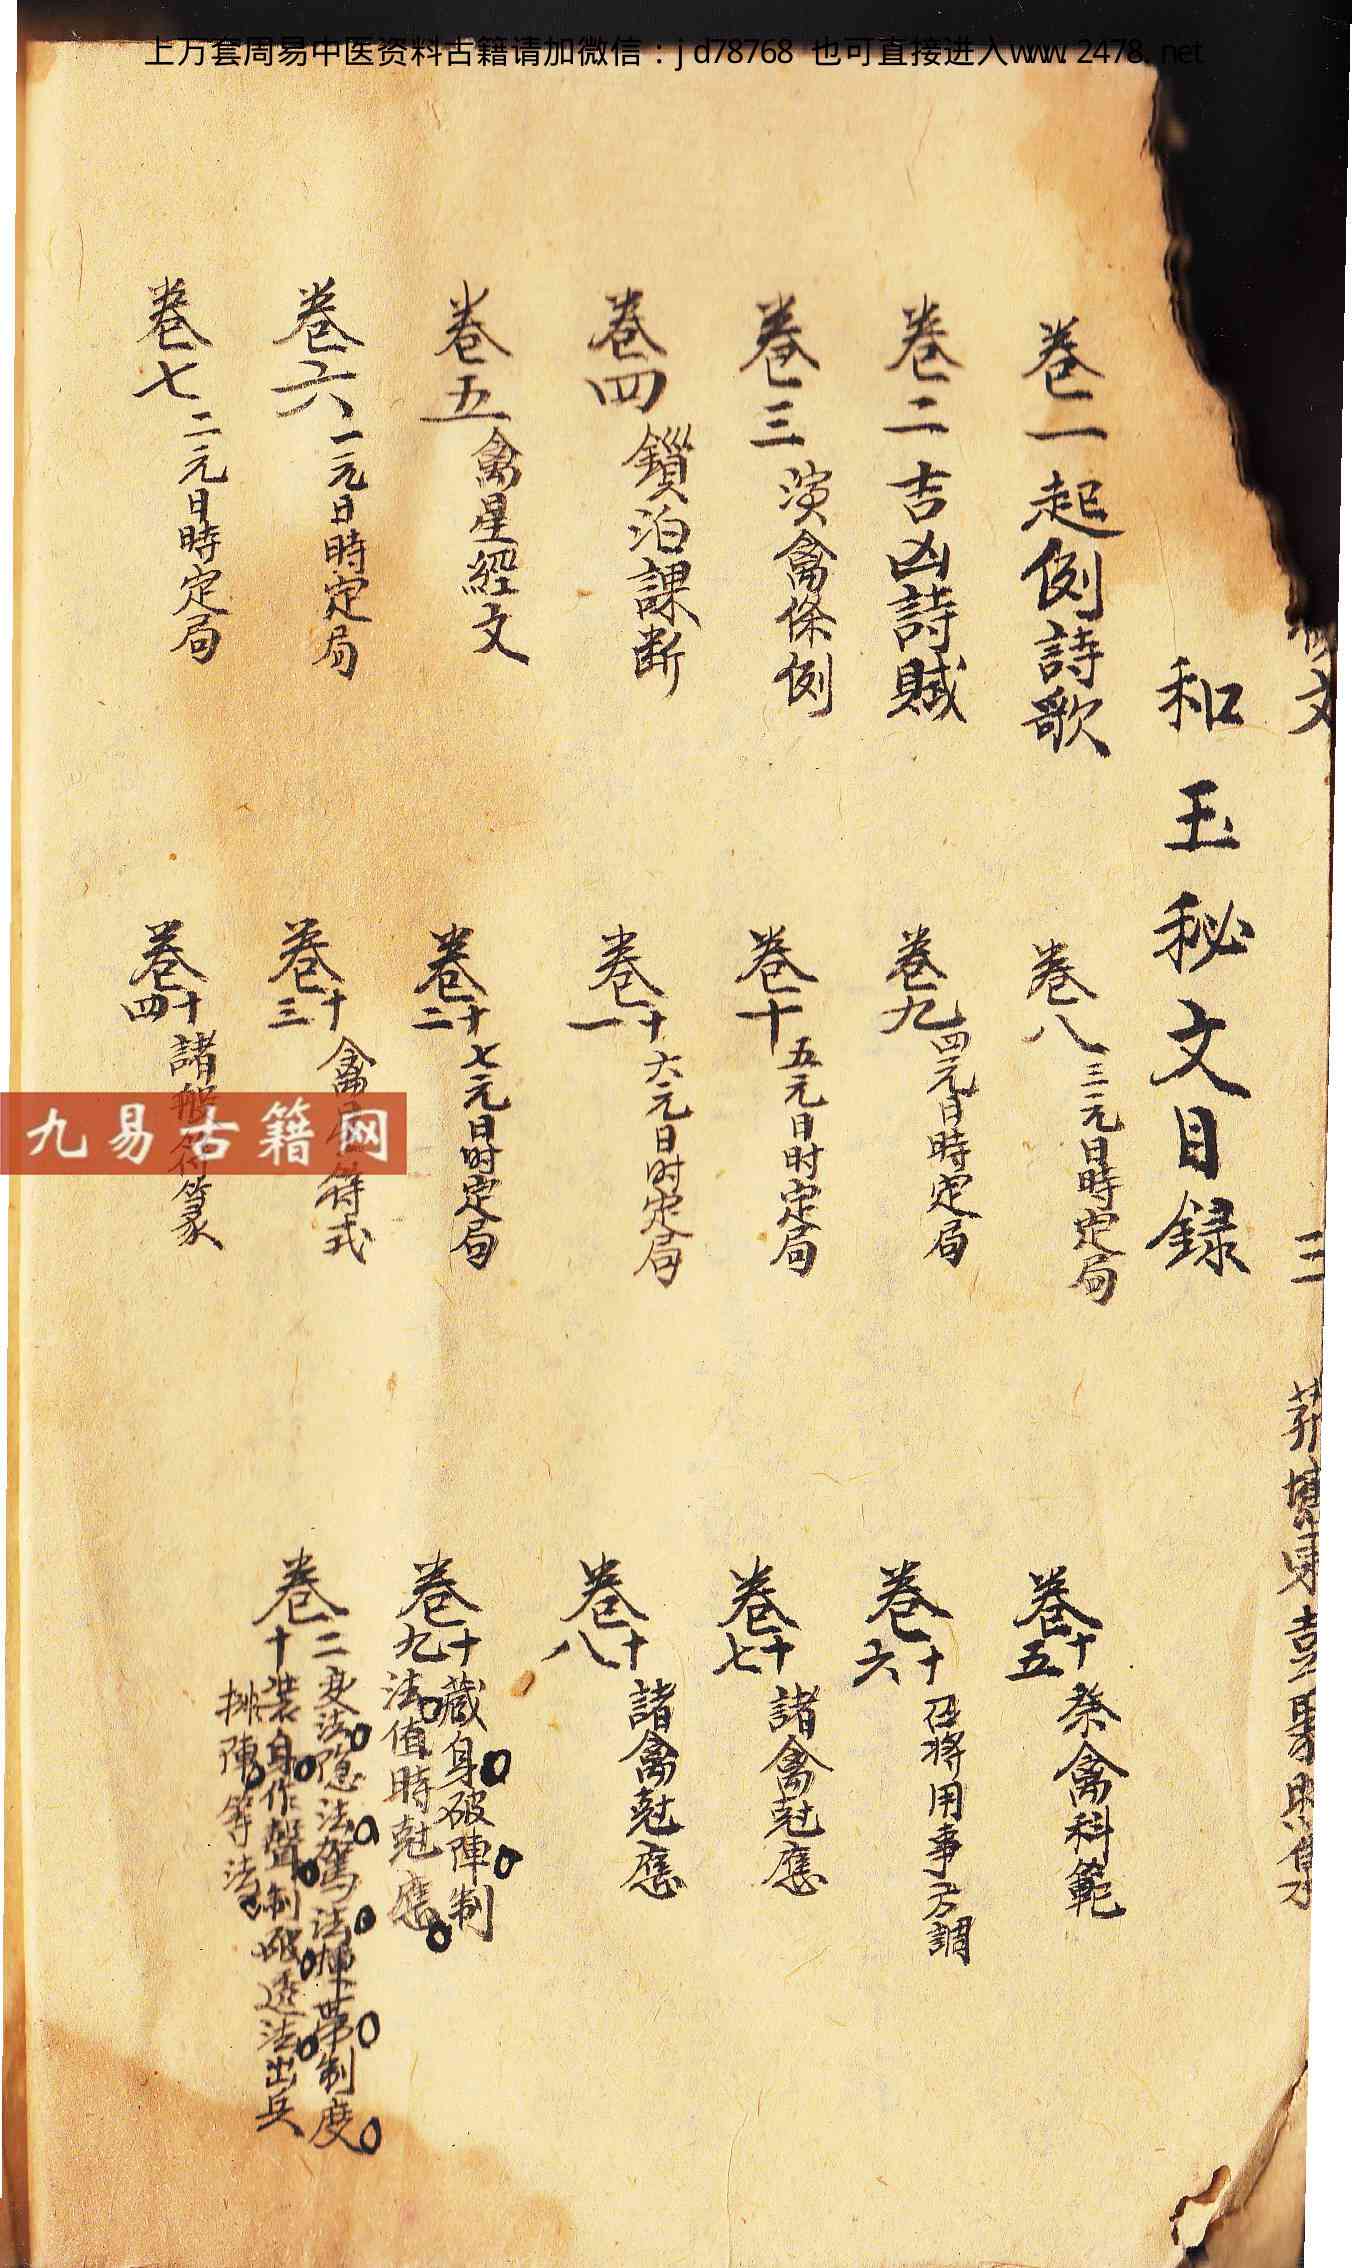 上万套周易中医资料古籍请加微信：jd78768 也可直接进入www.2478.net
文 三 葬
和玉秘文目録
卷一起例詩歌
卷二吉凶詩賦
卷三演禽條例
卷四鎖泊課断
卷五禽星經文
卷六一元日時定局
卷七二元日時定局
卷八三元日時定局
卷九四元日時定局
卷十五元日时定局
卷十一六元日时定局
卷十二七元日时定局
卷十三禽符式
卷十四諸般符篆
卷十五祭禽科範
卷十六召將用事方調
卷十七諸禽尅應
卷十八諸禽尅應
卷十九藏身破陣制
法值時尅應
卷二十变法隐法駕法帶制度
裝身作聲制破透法出兵
排陣等法
九易古籍网